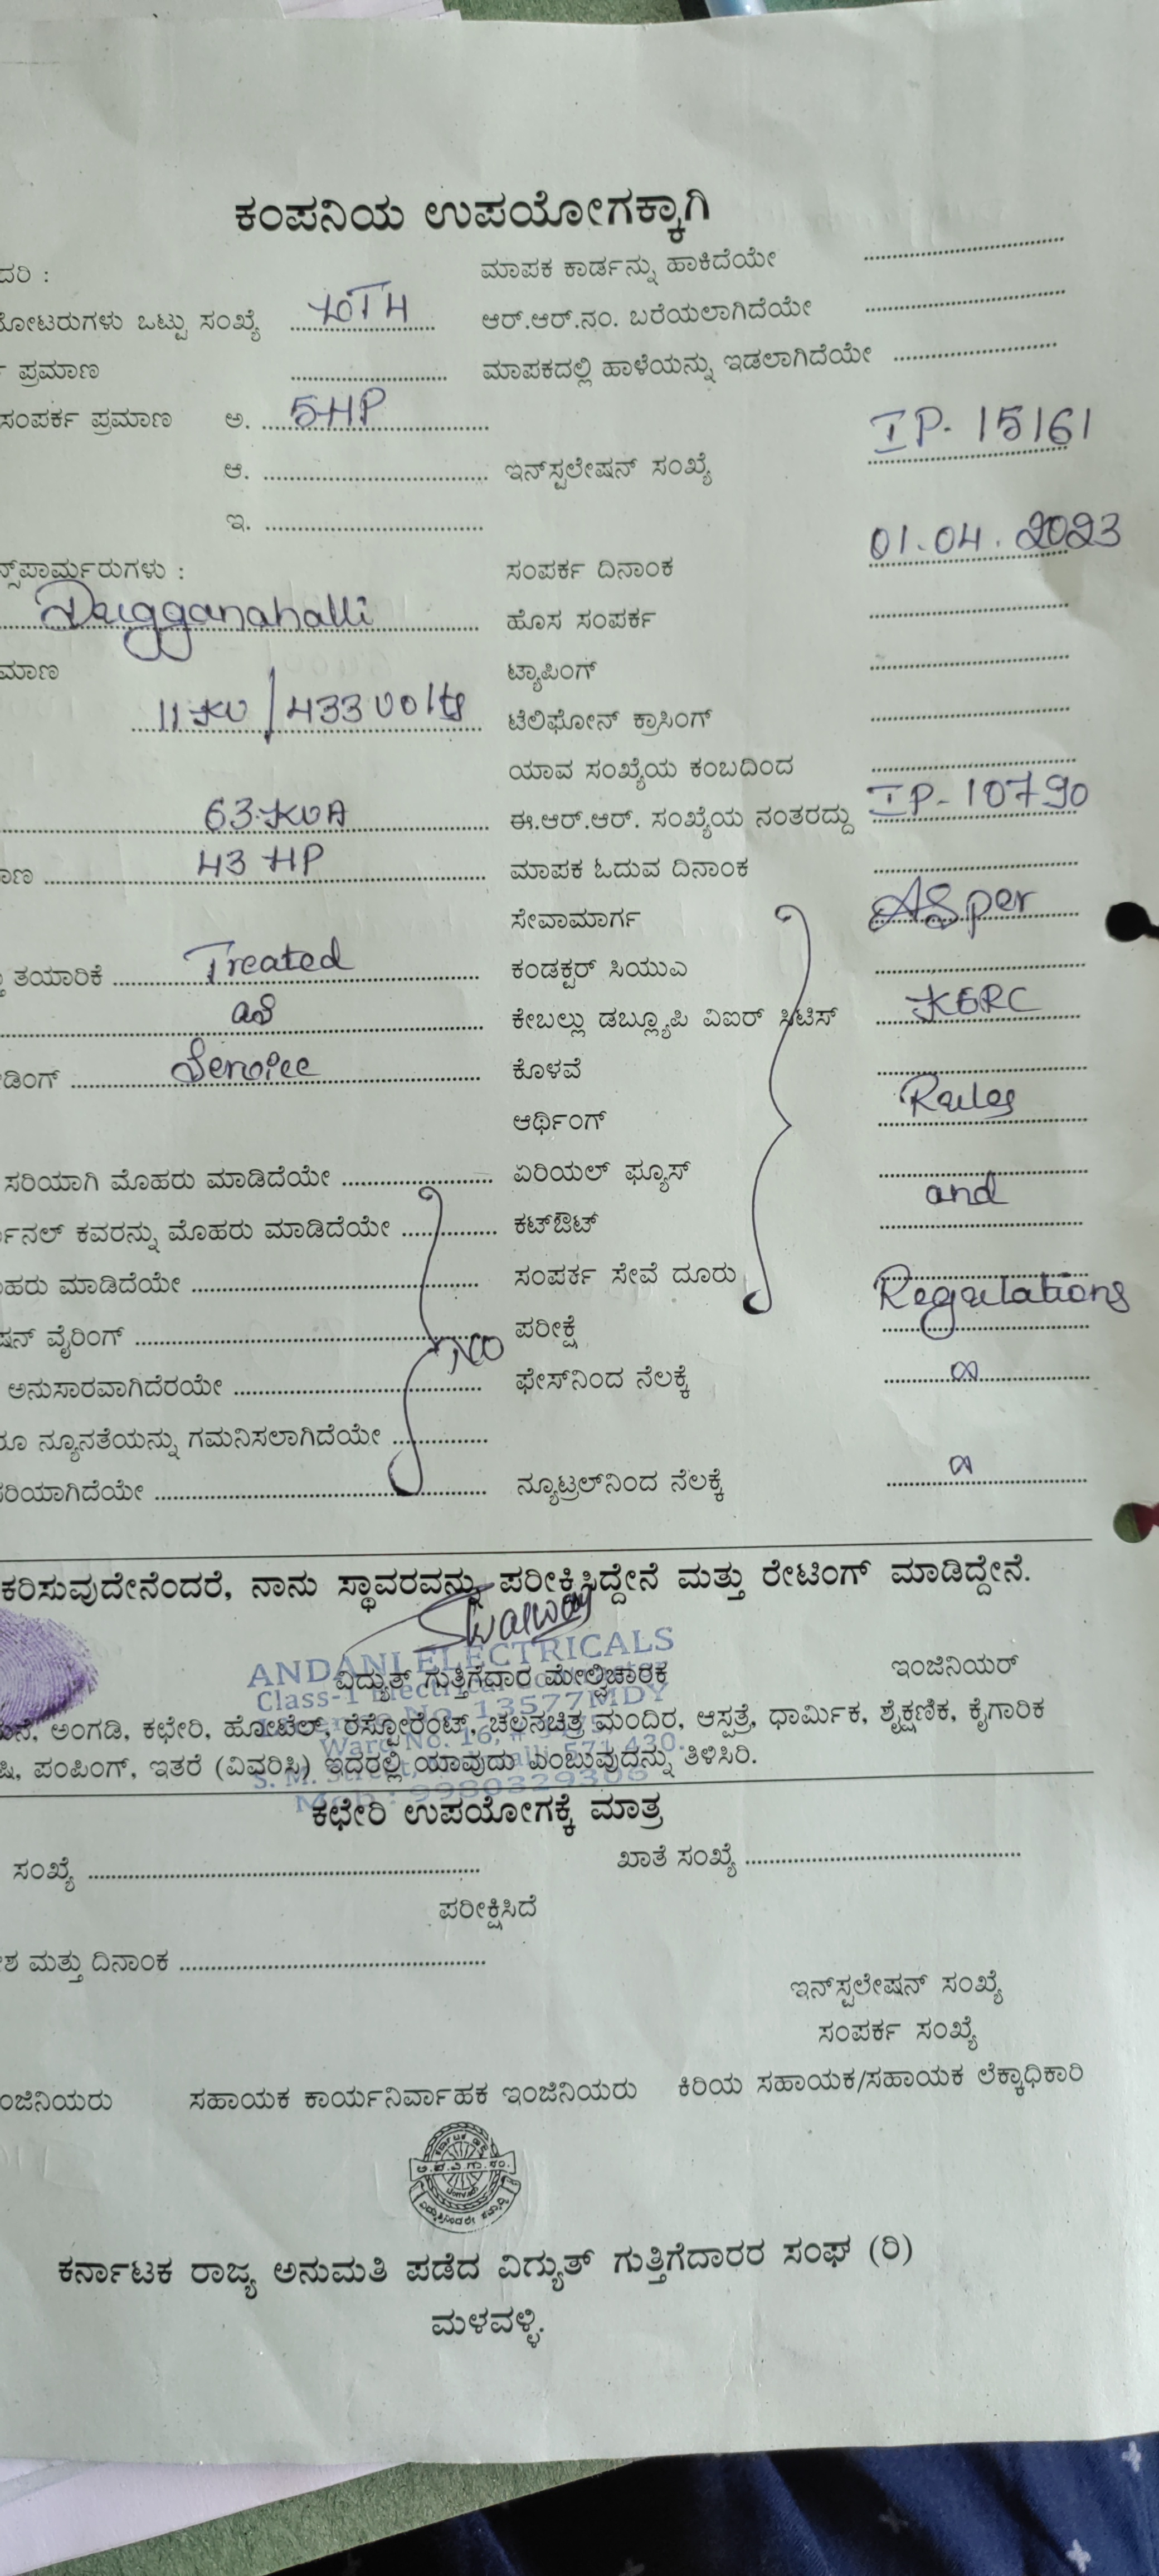 ಕಂಪನಿಯ ಉಪಯೋಗಕ್ಕಾಗಿ
ದರಿ : ಮಾಪಕ ಕಾರ್ಡನ್ನು ಹಾಕಿದೆಯೇ
ೋಟರುಗಳು ಒಟ್ಟು ಸಂಖ್ಯೆ ಆರ್.ಆರ್.ನಂ. ಬರೆಯಲಾಗಿದೆಯೇ
ಪ್ರಮಾಣ ಮಾಪಕದಲ್ಲಿ ಹಾಳೆಯನ್ನು ಇಡಲಾಗಿದೆಯೇ
ಸಂಪರ್ಕ ಪ್ರಮಾಣ ಅ. 5 HP
ಆ. ಇನ್‌ಸ್ಟಲೇಷನ್ ಸಂಖ್ಯೆ IP- 15161
ಇ.
ನ್ಸ್‌ಪಾರ್ಮ್ರರುಗಳು : ಸಂಪರ್ಕ ದಿನಾಂಕ 01.04.2023
Dugganahalli ಹೊಸ ಸಂಪರ್ಕ
ಮಾಣ ಟ್ಯಾಪಿಂಗ್
11 KV / 433 Volts ಟೆಲಿಫೋನ್ ಕ್ರಾಸಿಂಗ್
ಯಾವ ಸಂಖ್ಯೆಯ ಕಂಬದಿಂದ
63 KVA ಈ.ಆರ್.ಆರ್. ಸಂಖ್ಯೆಯ ನಂತರದ್ದು IP- 10790
ಾಣ 43 HP ಮಾಪಕ ಓದುವ ದಿನಾಂಕ
ಸೇವಾಮಾರ್ಗ As per
ತಯಾರಿಕೆ Treated ಕಂಡಕ್ಟರ್ ಸಿಯುಎ
as ಕೇಬಲ್ಲು ಡಬ್ಲ್ಯೂಪಿ ವಿಐರ್ ಸಿಟಿಸ್ KERC
ಡಿಂಗ್ Service ಕೊಳವೆ
ಆರ್ಥಿಂಗ್ Rules
ಸರಿಯಾಗಿ ಮೊಹರು ಮಾಡಿದೆಯೇ ಏರಿಯಲ್ ಫ್ಯೂಸ್
ರ್ಮಿನಲ್ ಕವರನ್ನು ಮೊಹರು ಮಾಡಿದೆಯೇ ಕಟ್‌ಔಟ್ and
ಹರು ಮಾಡಿದೆಯೇ ಸಂಪರ್ಕ ಸೇವೆ ದೂರು
ಷನ್ ವೈರಿಂಗ್ ಪರೀಕ್ಷೆ Regulations
ಅನುಸಾರವಾಗಿದೆರಯೇ NO ಫೇಸ್‌ನಿಂದ ನೆಲಕ್ಕೆ
ರೂ ನ್ಯೂನತೆಯನ್ನು ಗಮನಿಸಲಾಗಿದೆಯೇ
ರಿಯಾಗಿದೆಯೇ ನ್ಯೂಟ್ರಲ್‌ನಿಂದ ನೆಲಕ್ಕೆ
ಕರಿಸುವುದೇನೆಂದರೆ, ನಾನು ಸ್ಥಾವರವನ್ನು ಪರೀಕ್ಷಿಸಿದ್ದೇನೆ ಮತ್ತು ರೇಟಿಂಗ್ ಮಾಡಿದ್ದೇನೆ.
ANDANI ELECTRICALS
ವಿದ್ಯುತ್ ಗುತ್ತಿಗೆದಾರ ಮೇಲ್ವಿಚಾರಕ ಇಂಜಿನಿಯರ್
Class-1 Electrical
13577MDY
ಮನೆ, ಅಂಗಡಿ, ಕಛೇರಿ, ಹೋಟೆಲ್, ರೆಸ್ಟೋರೆಂಟ್, ಚಲನಚಿತ್ರ ಮಂದಿರ, ಆಸ್ಪತ್ರೆ, ಧಾರ್ಮಿಕ, ಶೈಕ್ಷಣಿಕ, ಕೈಗಾರಿಕ
Ward No. 16,
ಷಿ, ಪಂಪಿಂಗ್, ಇತರೆ (ವಿವರಿಸಿ) ಇದರಲ್ಲಿ ಯಾವುದು ಎಂಬುವುದನ್ನು ತಿಳಿಸಿರಿ.
S. M. Street, 571 430.
Mob : 9980329308
ಕಛೇರಿ ಉಪಯೋಗಕ್ಕೆ ಮಾತ್ರ
ಸಂಖ್ಯೆ ಖಾತೆ ಸಂಖ್ಯೆ
ಪರೀಕ್ಷಿಸಿದೆ
ಶ ಮತ್ತು ದಿನಾಂಕ
ಇನ್‌ಸ್ಟಲೇಷನ್ ಸಂಖ್ಯೆ
ಸಂಪರ್ಕ ಸಂಖ್ಯೆ
ಂಜಿನಿಯರು ಸಹಾಯಕ ಕಾರ್ಯನಿರ್ವಾಹಕ ಇಂಜಿನಿಯರು ಕಿರಿಯ ಸಹಾಯಕ/ಸಹಾಯಕ ಲೆಕ್ಕಾಧಿಕಾರಿ
ಕರ್ನಾಟಕ ರಾಜ್ಯ ಅನುಮತಿ ಪಡೆದ ವಿದ್ಯುತ್ ಗುತ್ತಿಗೆದಾರರ ಸಂಘ (ರಿ)
ಮಳವಳ್ಳಿ.